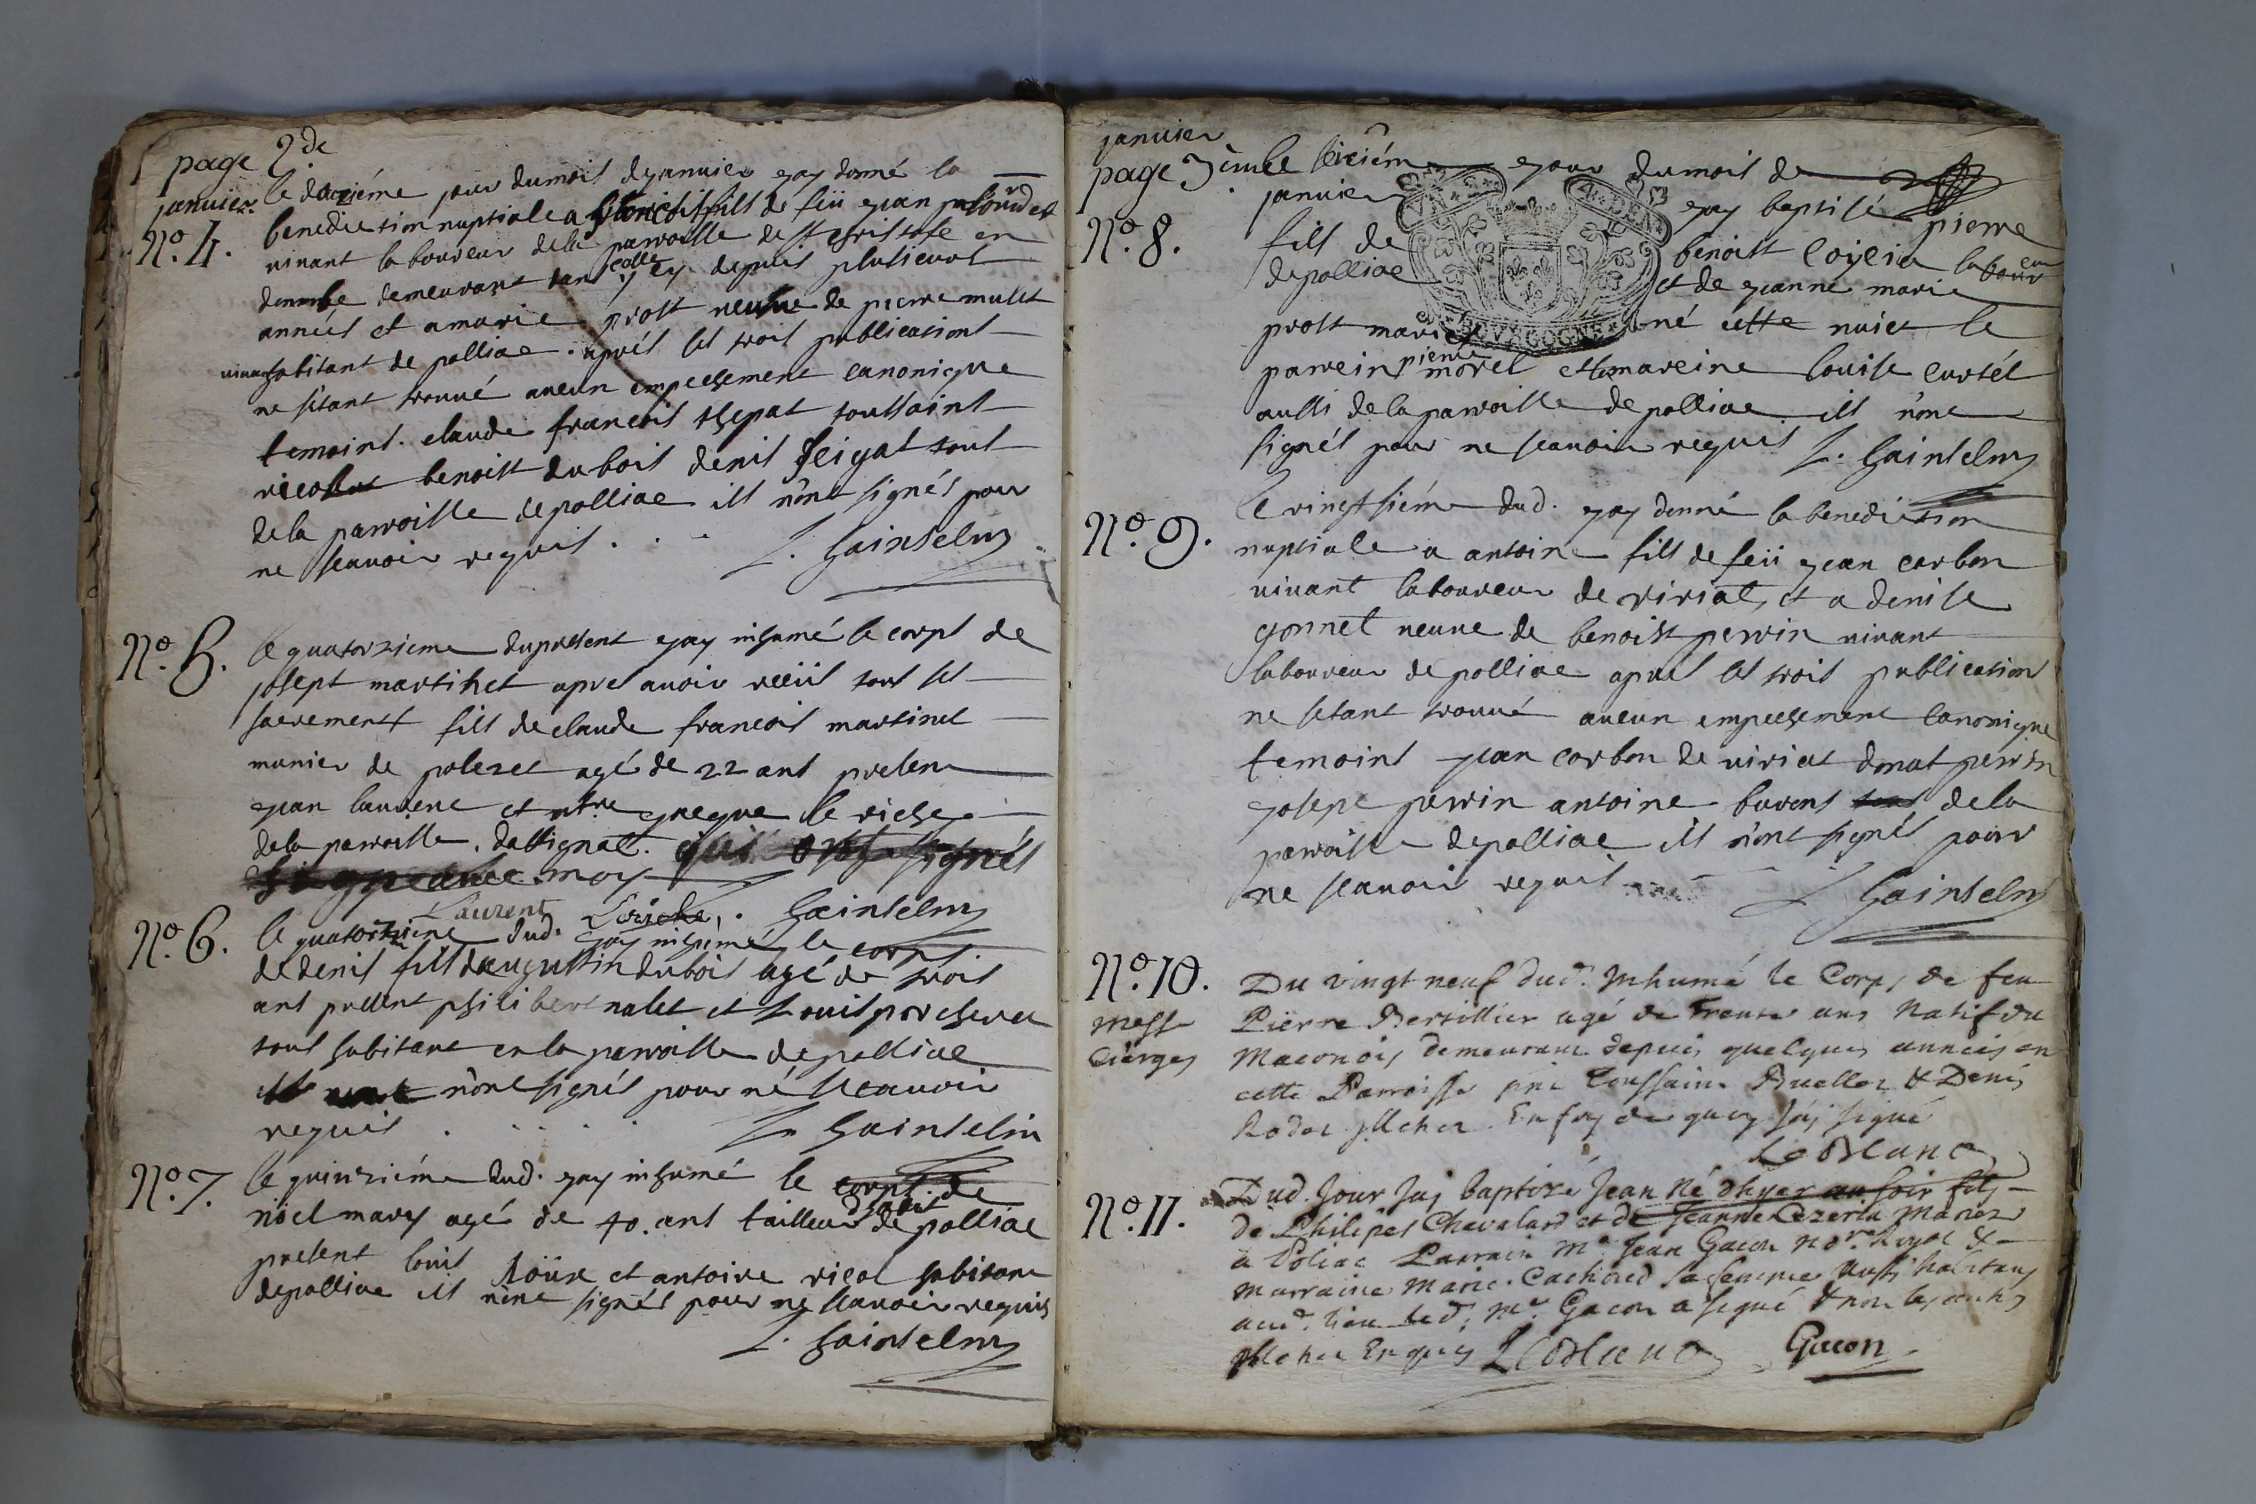 page 2de
janvier
No. 4.
le douziéme jour dumois de janvier jay donné la
benediction nuptiale a fils de feü jean
vivant laboureur dela parroisse de st cristofle en
demeurant dans icy depuis plusieurs
années et a marie prost veufve de pierre mulet
vivant habitant de polliac. aprés les trois publications
ne sétant trouvé aucun empechement canonique
temoins. claude francois chepat toussaint
benoist dubois denis feigat tous
dela parroisse depolliac ils n'ont signés pour
ne scauoir requis . . . L. Gainselin
No. 5.
le quatorzieme dupresent jay inhumé le corps de
josept martinet apres avoir reçeü tous les
sacrements fils de claude francois martinet
munier de polezet agé de 22 ans present
jean laurent et mtre jacque le riche
dela parroisse dattignat. qui ont signés
avec moy
Laurent Leriche. Gainselin
No. 6.
le quatorzieme dud. jay inhumé le corps
de denis fils daugustin dubois agé de trois
ans present philibert nalet et Louis porcheret
tous habitant en la parroisse depolliac
ils n'ont signés pour né scauoir
requis . . . . L. Gainselin
No. 7.
le quinziéme dud. jay inhumé le corps de
noel marey agé de 40. ans tailleur dhabit de polliac
present louis Roüx et antoine ricol habitans
depolliac ils n'ont signés pour ne scauoir requis
L. Gainselin
janvier
page 3éme
No. 8.
le seiziéme jour dumois de
janvier jay baptisé pierre
fils de benoist loyein laboureur
depolliac et de jeanne marie
prost mariés né cette nuict le
parrein pierre morel et la mareine louise curtét
aussi de la parroisse depolliac ils n'ont
signés pour ne scauoir requis L. Gainselin
No. 9.
le vingtsiéme dud. jay donné la benediction
nuptiale a antoine fils de feü jean carbon
vivant laboureur de viriat, et a denise
gonnet veuve de benoist perrin vivant
laboureur de polliac aprés les trois publication
ne setant trouvé aucun empechement canonique
temoins jean carbon de viriat donat perrin
josept perrin antoine burent dela
parroisse depolliac ils n'ont signés pour
ne scauoir requis L Gainselin
No. 10.
messe
Cierges
Du vingt neuf dud. Inhumé le Corps de feu
Pierre Bertillier agé de Trente ans Natif du
Maconois demeurant depuis quelques années en
cette Parroisse pnt Toussaint Ruellet & Denis
Rodet Illeter. En foy de quoy J'ai signé
Le Blanc
No. 11.
Dud. Jour J'ai baptizé Jean Né d'hyer au soir fils
de Philipes Chavalard et de Jeanne Cezerin Mariez
à Poliac Parrain Me. Jean Gacon Nore. Royal &
Marraine Marie Cachored sa femme Aussi habitans
aud. lieu led. Mr. Gacon a signé & non les autres
Illeter Enquis LeBlanc Gacon